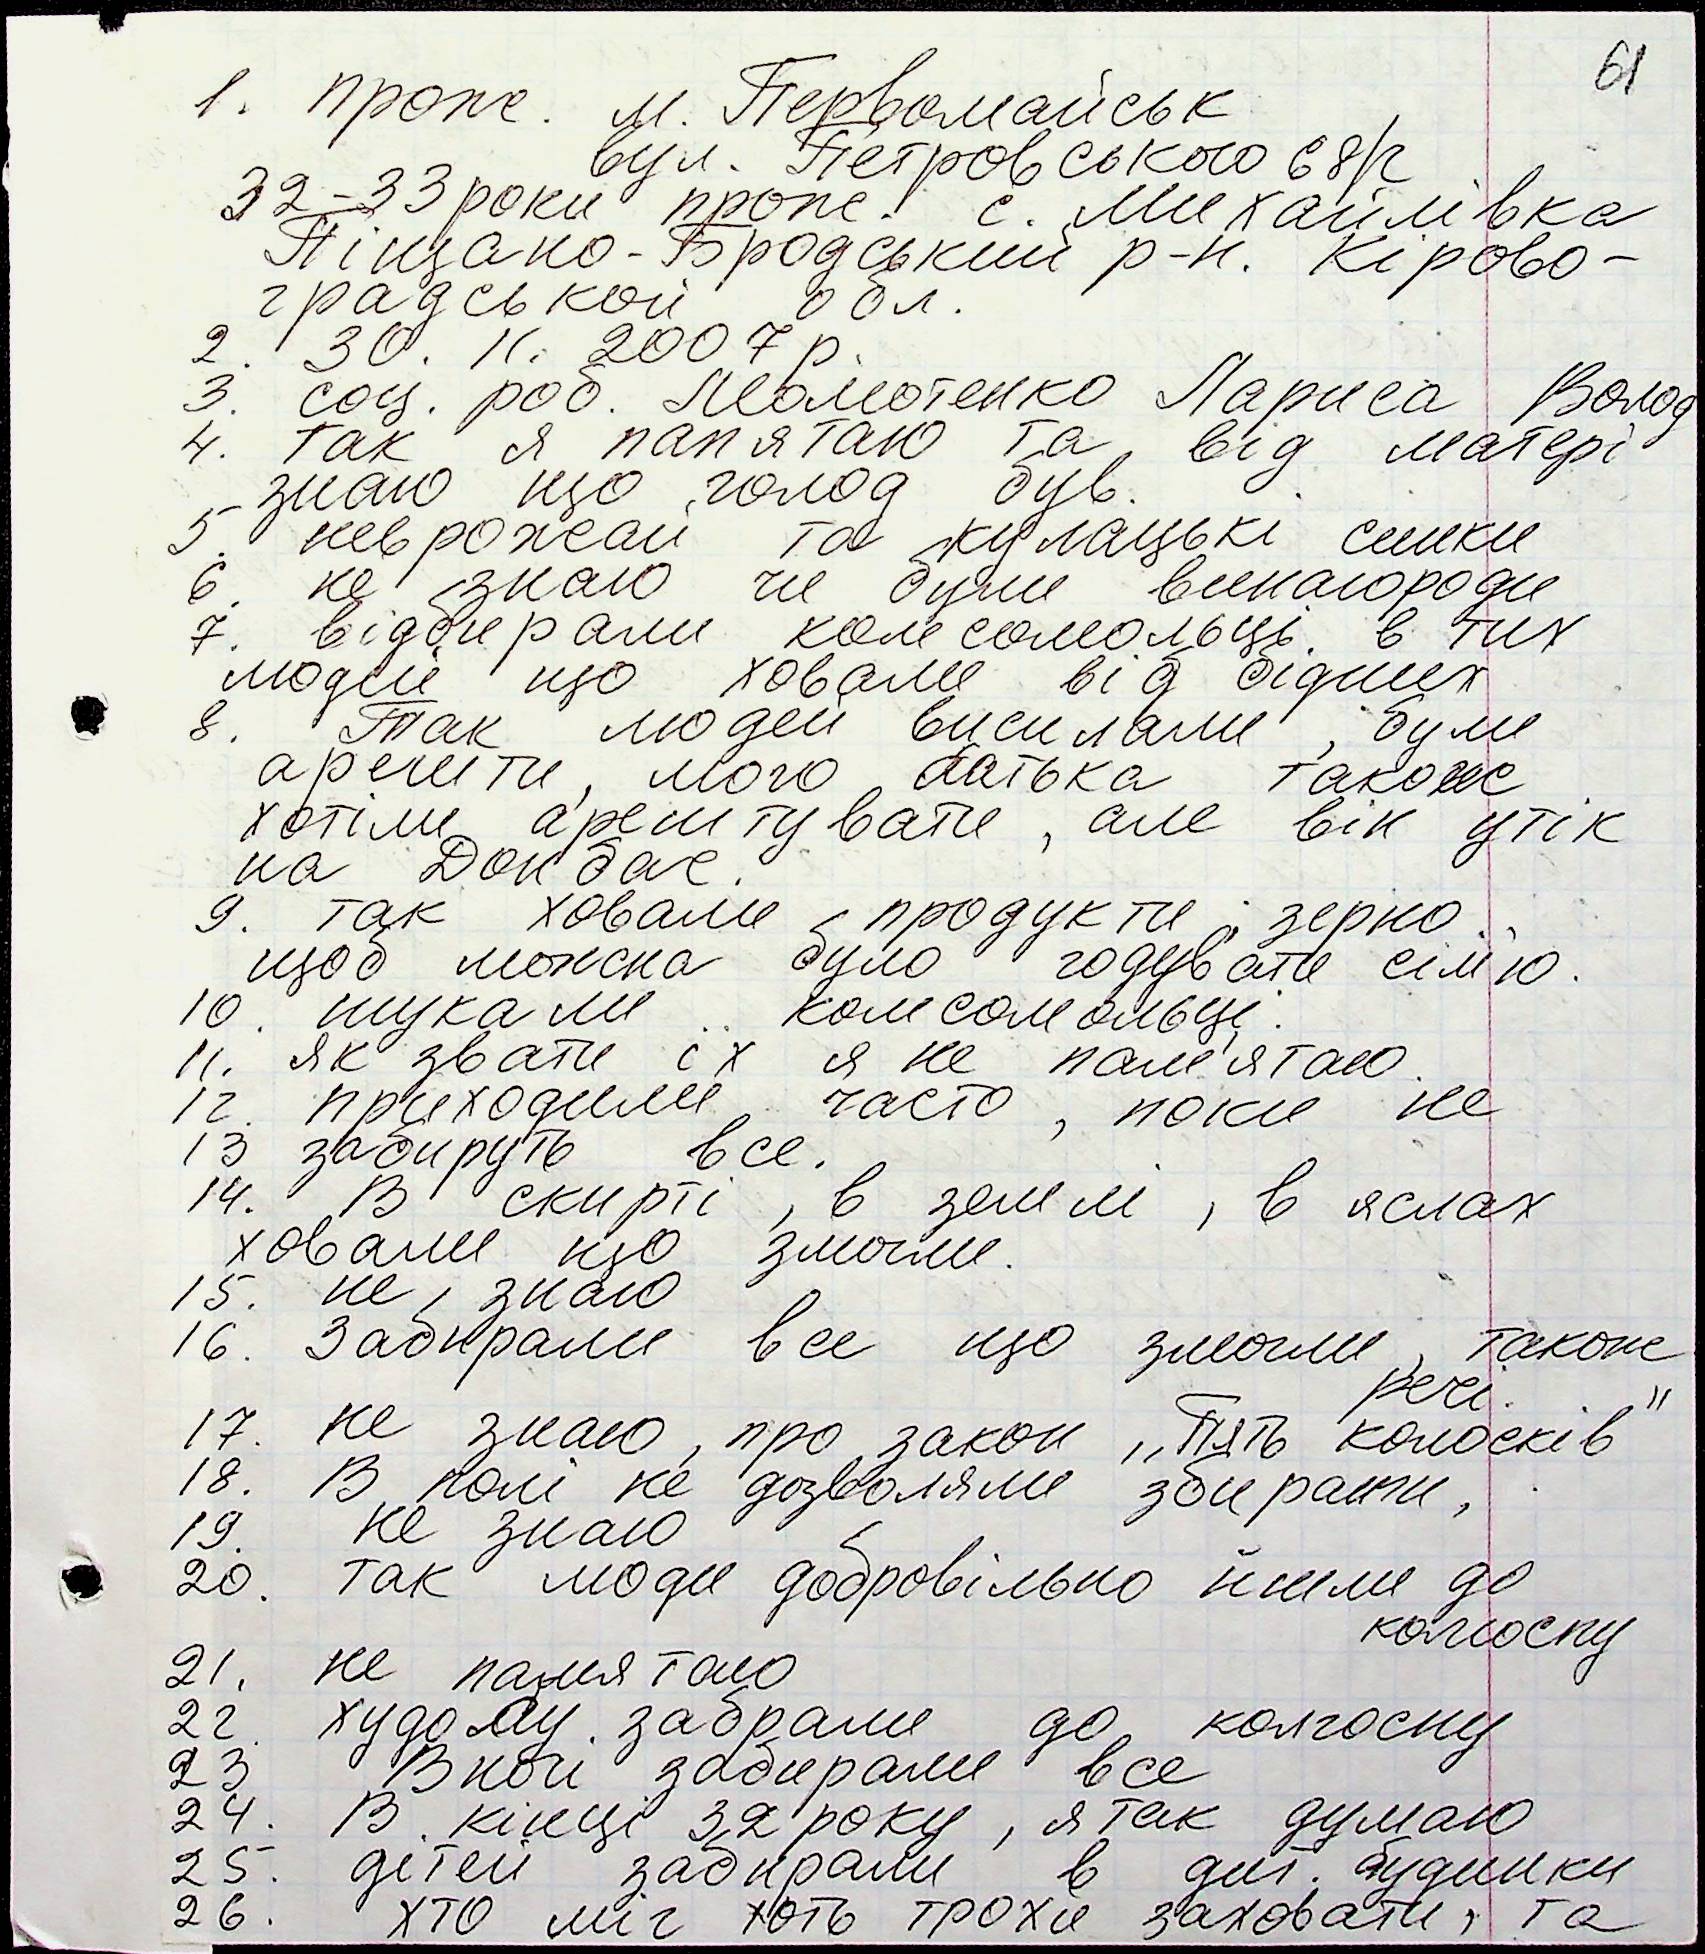 61
1. прож. м. Первомайськ
вул. Петровського 68/2
32-33 роки прож. с. Михайлівка
Піщано-Бродський р-н. Кірово-
градськой обл.
2. 30. 11. 2007 р.
3. соц. роб. Лариса Волод
4. так я папятаю та від матері
знаю що голод був.
5. неврожай та кулацькі синки
6. не знаю чи були винагороди
7. відбирали комсомольці в тих
людей що ховали від бідних
8. Так людей висилали, були
арешти, мого батька також
хотіли арештувати, але він утік
на Донбас.
9. так ховали продукти, зерно
щоб можна було годувати сім'ю.
10. шукали комсомольці.
11. як звати їх я не пам'ятаю.
12. приходили часто, поки не
13 заберуть все.
14. В скирті, в землі, в яслах
ховали що змогли.
15. не знаю
16. Забирали все що змогли, також
речі.
17. не знаю, про закон „Пять колосків"
18. В полі не дозволяли збирати,
19. не знаю
20. так люди добровільно йшли до
колгоспу
21. не памятаю
22. худобу забрали до колгоспу
23 Вночі забирали все
24. В кінці 32 року, я так думаю
25. дітей забирали в дит. будинки
26. хто міг хоть трохи заховати, та